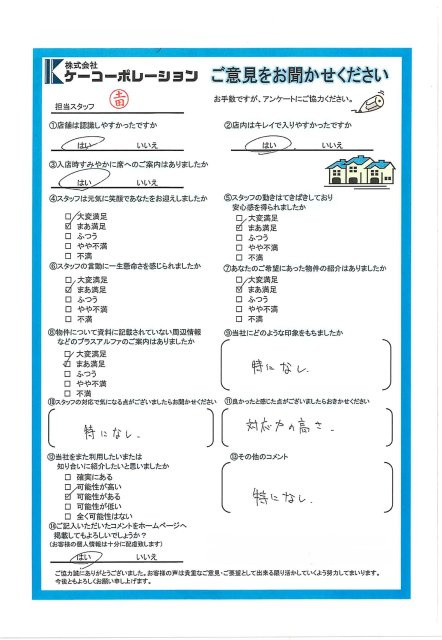 株式会社
ケーコーポレーション
ご意見をお聞かせください
担当スタッフ
お手数ですが、アンケートにご協力ください。
①店舗は認識しやすかったですか
はい いいえ
②店内はキレイで入りやすかったですか
はい いいえ
③入店時すみやかに席へのご案内はありましたか
はい いいえ
④スタッフは元気に笑顔であなたをお迎えしましたか
□大変満足
☑まあ満足
□ふつう
□やや不満
□不満
⑤スタッフの動きはてきぱきしており
安心感を得られましたか
□大変満足
☑まあ満足
□ふつう
□やや不満
□不満
⑥スタッフの言動に一生懸命さを感じられましたか
□大変満足
☑まあ満足
□ふつう
□やや不満
□不満
⑦あなたのご希望にあった物件の紹介はありましたか
□大変満足
☑まあ満足
□ふつう
□やや不満
□不満
⑧物件について資料に記載されていない周辺情報
などのプラスアルファのご案内はありましたか
□大変満足
☑まあ満足
□ふつう
□やや不満
□不満
⑨当社にどのような印象をもちましたか
特になし.
⑩スタッフの対応で気になる点がございましたらお聞かせください
特になし.
⑪良かったと感じた点がございましたらおきかせください
対応力の高さ.
⑫当社をまた利用したいまたは
知り合いに紹介したいと思いましたか
□確実にある
□可能性が高い
☑可能性がある
□可能性が低い
□全く可能性はない
⑬その他のコメント
特になし.
⑭ご記入いただいたコメントをホームページへ
掲載してもよろしいでしょうか?
(お客様の個人情報は十分に配慮致します)
はい いいえ
ご協力誠にありがとうございました。お客様の声は貴重なご意見・ご要望として出来る限り活かしていくよう努力してまいります。
今後ともよろしくお願い申し上げます。